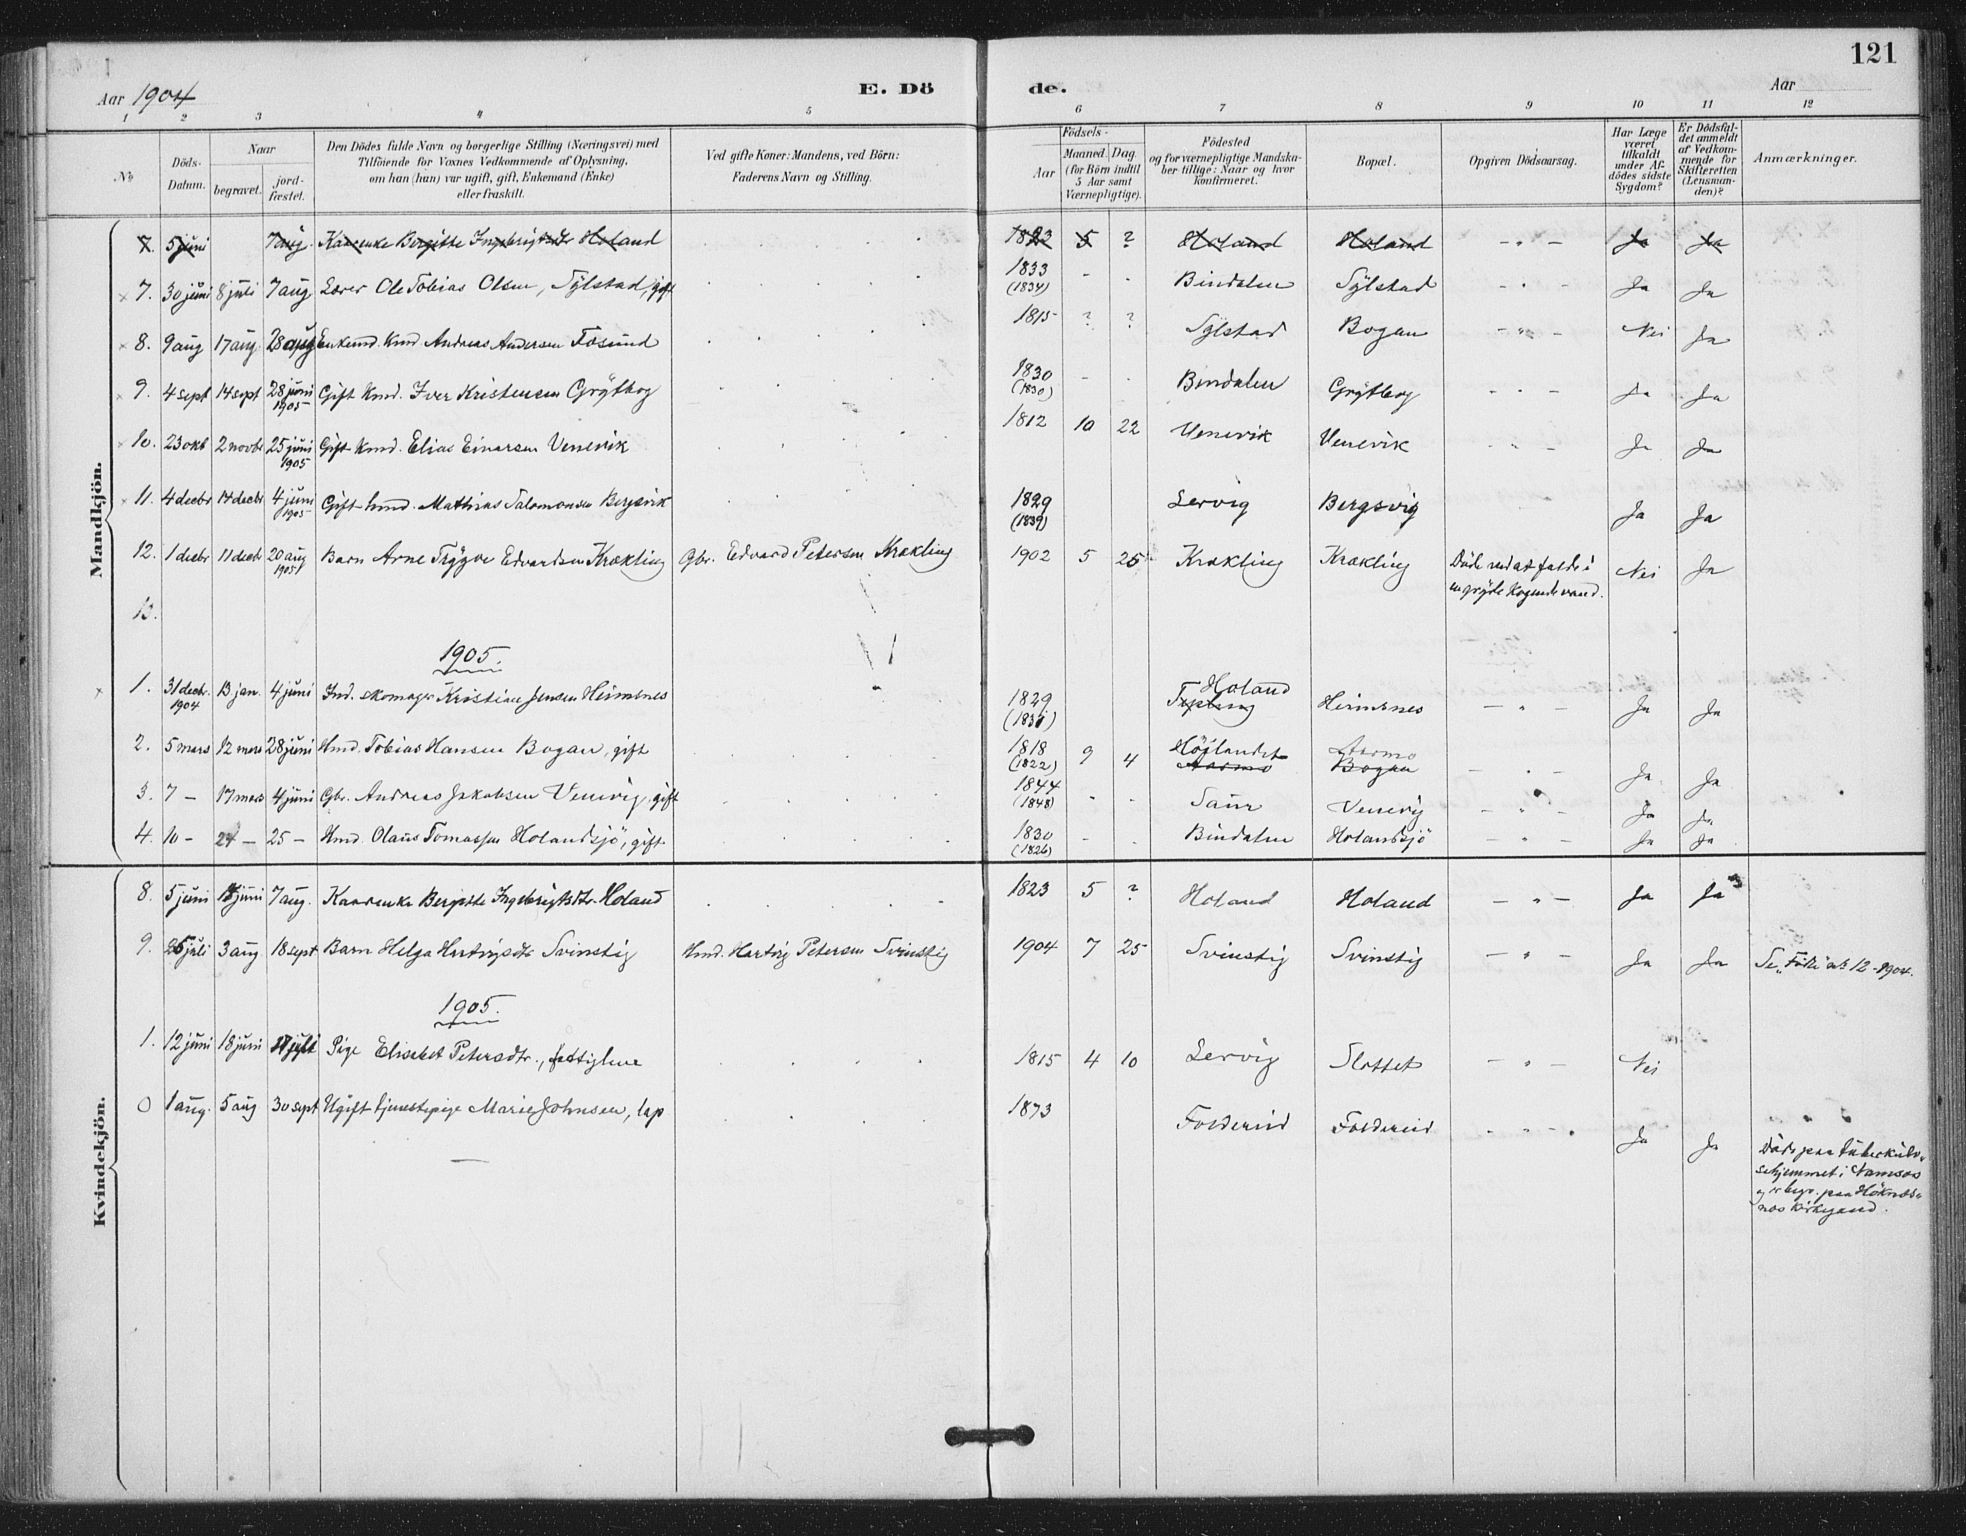 121
Aar 1904
E. Dö
de.
Aar
1 2 3 4 5 6 7 8 9 10 11 12
No
Döds-Datum.
Naar
begravet.
jord-fæstet.
Den Dödes fulde Navn og borgerlige Stilling (Næringsvei) med
Tilföiende for Voxnes Vedkommende af Oplysning,
om han (hun) var ugift, gift, Enkemand (Enke)
eller fraskilt.
Ved gifte Koner: Mandens, ved Börn:
Faderens Navn og Stilling.
Födsels-
Aar
Maaned. Dag.
(for Börn indtil
5 Aar samt
Værnepligtige).
Födested
og for værnepligtige Mandska-
ber tillige: Naar og hvor
konfirmeret.
Bopæl.
Opgiven Dödsaarsag.
Har Læge
været
tilkaldt
under Af-
dödes sidste
Sygdom?
Er Dödsfal-
det anmeldt
af Vedkom-
mende for
Skifteretten
(Lensman-
den)?
Anmærkninger.
Mandkjön.
7. 5 juni 7 aug. Kaarenke Bergitte Ingebrigtsdtr Holand 1823 5 ? Holand Holand - " - Ja Ja
7. 30 juni 8 juli 7 aug Lærer Ole Tobias Olsen, Sylstad, gift 1833 (1834) - - Bindalen Sylstad - " - Ja Ja
8. 9 aug 17 aug. 28 aug Enkemd. Kmd Andreas Andersen Fosund 1815 ? ? Sylstad Bogan - " - Nei Ja
9. 4 sept 14 sept 28 juni 1905 Gift Kmd. Iver Kristensen Grytbog 1830 (1830) - - Bindalen Grytbog - " - Ja Ja
10. 23 okb 2 novbr 25 juni 1905 Gift Kmd. Elias Einarsen Venevik 1812 10 22 Venevik Venevik Ja Ja
11. 4 decbr 14 decbr 4 juni 1905 Gift hmd. Mathias Salomonsen Bergsvik 1829 (1839) Lervig Bergsvig Ja Ja
12. 1 decbr 11 decbr 20 aug 1905 Barn Arne Trygve Edvardsen Krækling Gbr. Edvard Petersen Krækling 1902 5 25 Krækling Krækling Döde ved at falde i
en gryte kogende vand. Nei Ja
13.
1905.
1. 31 decbr. 1904 13 jan. 4 juni Ind. skomager Kristian Jensen Heimsnes 1829 (1831) Holand Heimsnes - " - Ja Ja
2. 5 mars 12 mars 28 juni Hmd. Tobias Hansen Bogan, gift 1818 (1822) 9 4 Höilandet Aarmo Aarmo Bogan - " - Ja Ja
3. 7 - 17 mars 4 juni Gbr. Andreas Jakobsen Venevig, gift 1844 (1848) - - Saur Venevig - " - Ja Ja
4. 10 - 24 - 25 - Hmd. Olaus Tomassen Holandsjö, gift 1830 (1826) - - Bindalen Holandsjö - " - Ja Ja
Kvindekjön.
8. 5 juni juni 7 aug. Kaarenke Bergitte Ingebrigtsdtr. Holand 1823 5 ? Holand Holand - " - Ja Ja
9. 25 juli 3 aug 18 sept Barn Helga Hartvigsdtr Svinstig Hmd. Hartvig Petersen Svinstig 1904 7 25 Svinstig Svinstig - " - Ja Ja Se "Födte" nr 12 - 1904.
1905.
1. 12 juni 18 juni Pige Elisabet Petersdtr., fattiglem 1815 4 10 Lervig Slottet - " - Nei
0 1 aug. 5 aug 30 sept Ugift tjenestepige Marie Johnsen, lap 1873 Foldereid Foldereid - " - Ja Ja Döde paa tuberkulo-
sehjemmet i Namsos
og er begr. paa Höknes-
nes kirkegaard.